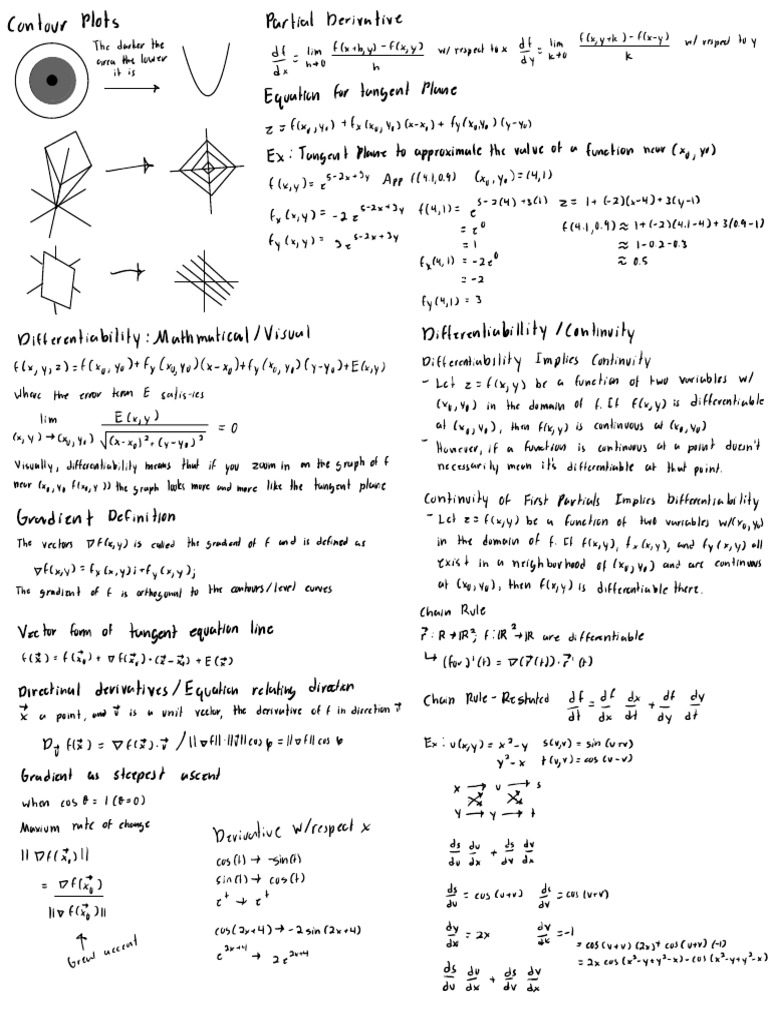 Contour Plots
The darker the
area the lower
it is
Partial Derivative
df/dx = lim h→0 f(x+h,y) - f(x,y) / h w/ respect to x df/dy = lim k→0 f(x,y+k) - f(x-y) / k w/ respect to y
Equation for tangent Plane
z = f(x₀,y₀) + fx(x₀,y₀)(x-x₀) + fy(x₀,y₀)(y-y₀)
Ex: Tangent Plane to approximate the value of a function near (x₀, y₀)
f(x,y) = e^(5-2x+3y) App f(4.1,0.9) (x₀,y₀) = (4,1)
fx(x,y) = -2e^(5-2x+3y)
fy(x,y) = 3e^(5-2x+3y)
f(4,1) = e^(5-2(4)+3(1))
= e⁰
= 1
fx(4,1) = -2e⁰
= -2
fy(4,1) = 3
z = 1+(-2)(x-4)+3(y-1)
f(4.1,0.9) ≈ 1+(-2)(4.1-4)+3(0.9-1)
≈ 1-0.2-0.3
≈ 0.5
Differentiability: Mathmatical/Visual
f(x,y,z) = f(x₀,y₀) + fy(x₀,y₀)(x-x₀) + fy(x₀,y₀)(y-y₀) + E(x,y)
where the error term E satis-ies
lim (x,y)→(x₀,y₀) E(x,y) / √((x-x₀)²+(y-y₀)²) = 0
Visually, differentiability means that if you zoom in on the graph of f
near (x₀,y₀ f(x₀,y)) the graph looks more and more like the tangent plane
Gradient Definition
The vectors ∇f(x,y) is called the gradent of f and is defined as
∇f(x,y) = fx(x,y)i + fy(x,y)j
The gradient of f is orthogonal to the contours/level curves
Vector form of tangent equation line
f(x⃗) = f(x⃗₀) + ∇f(x⃗₀)·(x⃗-x⃗₀) + E(x⃗)
Directinal derivatives/Equation relating direction
x⃗ a point, and v⃗ is a unit vector, the derivative of f in direction v⃗
D f(x⃗) = ∇f(x⃗)·v⃗ / ||∇f||·||v⃗||cos φ = ||∇f||cos φ
Gradient as steepest ascent
when cos θ = 1 (θ=0)
Maxium rate of change
||∇f(x⃗₀)||
= ∇f(x⃗₀) / ||∇f(x⃗₀)||
Derivative w/respect x
cos(t) → -sin(t)
sin(t) → cos(t)
e^t → e^t
cos(2x+4) → -2 sin(2x+4)
e^(2x+4) → 2e^(2x+4)
Differentiabillity/Continuity
Differentiability Implies Continuity
- Let z = f(x,y) be a function of two variables w/
(x₀,y₀) in the domain of f. If f(x,y) is differentiable
at (x₀,y₀), then f(x,y) is continuous at (x₀,y₀)
- However, if a function is continuous at a point doesn't
necessarily mean it's differentiable at that point.
Continuity of First Partials Implies Differentiability
- Let z = f(x,y) be a function of two variables w/(x₀,y₀)
in the domain of f. If f(x,y), fx(x,y), and fy(x,y) all
exist in a neighborhood of (x₀,y₀) and are continuous
at (x₀,y₀), then f(x,y) is differentiable there.
Chain Rule
r⃗: R→R²; f: R²→R are differentiable
↳ (for)'(t) = ∇(r⃗(t))·r⃗'(t)
Chain Rule - Restated df/dt = df/dx dx/dt + df/dy dy/dt
Ex: u(x,y) = x²-y s(u,v) = sin(u+v)
y²-x t(u,v) = cos(u-v)
x → u → s
y → y → t
ds/du du/dx + ds/dv dv/dx
ds/du = cos(u+v) ds/dv = cos(u+v)
dy/dx = 2x dv/dx = -1
= cos(u+v)(2x) + cos(u+v)(-1)
= 2x cos(x²-y+y²-x) - cos(x²-y+y²-x)
ds/du du/dx + ds/dv dv/dx